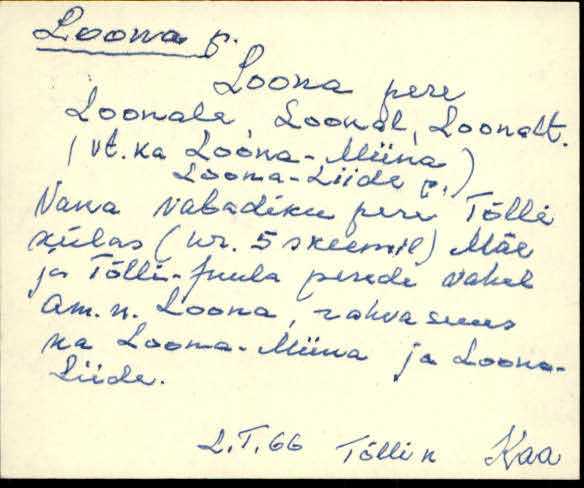 Loona p.
Loona pere
Loonale, Loonal, Loonalt.
(vt. ka Loona-Miina)
Looma-Liide p.)
Vana vabadiku pere Tõlli
külas (nr. 5 skeemil) Mäe
ja Tõlli-Juula perede vahel
Am. n. Loona, rahva suus
ka Looma-Miina ja Loona-
Liide.
2.T.66 Tõlli k Kaa